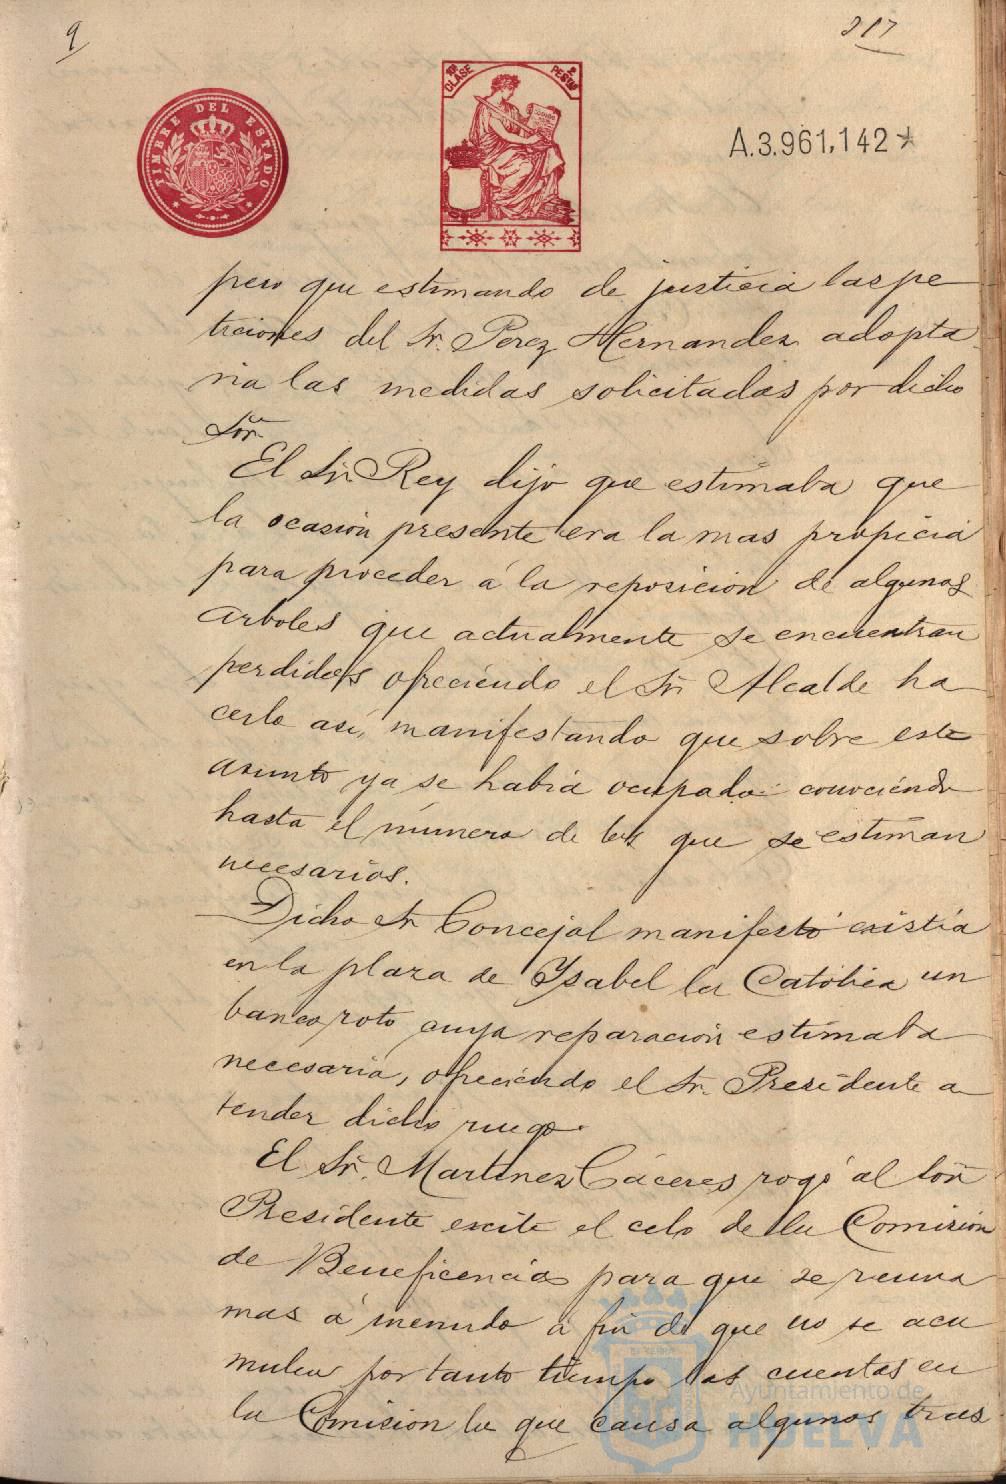 9
217
TIMBRE DEL ESTADO
10ª CLASE
PESETAS
A.3.961,142*
pero que estimando de justicia las pe
ticiones del Sr. Perez Hernandez adopta
ria las medidas solicitadas por dicho
Sor.
El Sr. Rey dijo que estimaba que
la ocasión presente era la mas propicia
para proceder á la reposicion de algunos
arboles que actualmente se encuentran
perdidos ofreciéndo el Sr. Alcalde ha
cerlo asi, manifestando que sobre este
asunto ya se habia ocupado conociéndo
hasta el número de los que se estiman
necesarios.
Dicho Sr Concejal manifestó existia
en la plaza de Ysabel la Catolica un
banco roto cuya reparacion estimaba
necesaria, ofreciendo el Sr. Presidente a
tender dicho ruego.
El Sr. Martinez Cáceres rogó al Sor
Presidente excite el celo de la Comision
de Beneficencia para que se reuna
mas á menudo á fin de que no se acu
mulen por tanto tiempo las cuentas en
la Comision lo que causa algunos tras
Ayuntamiento de
HUELVA